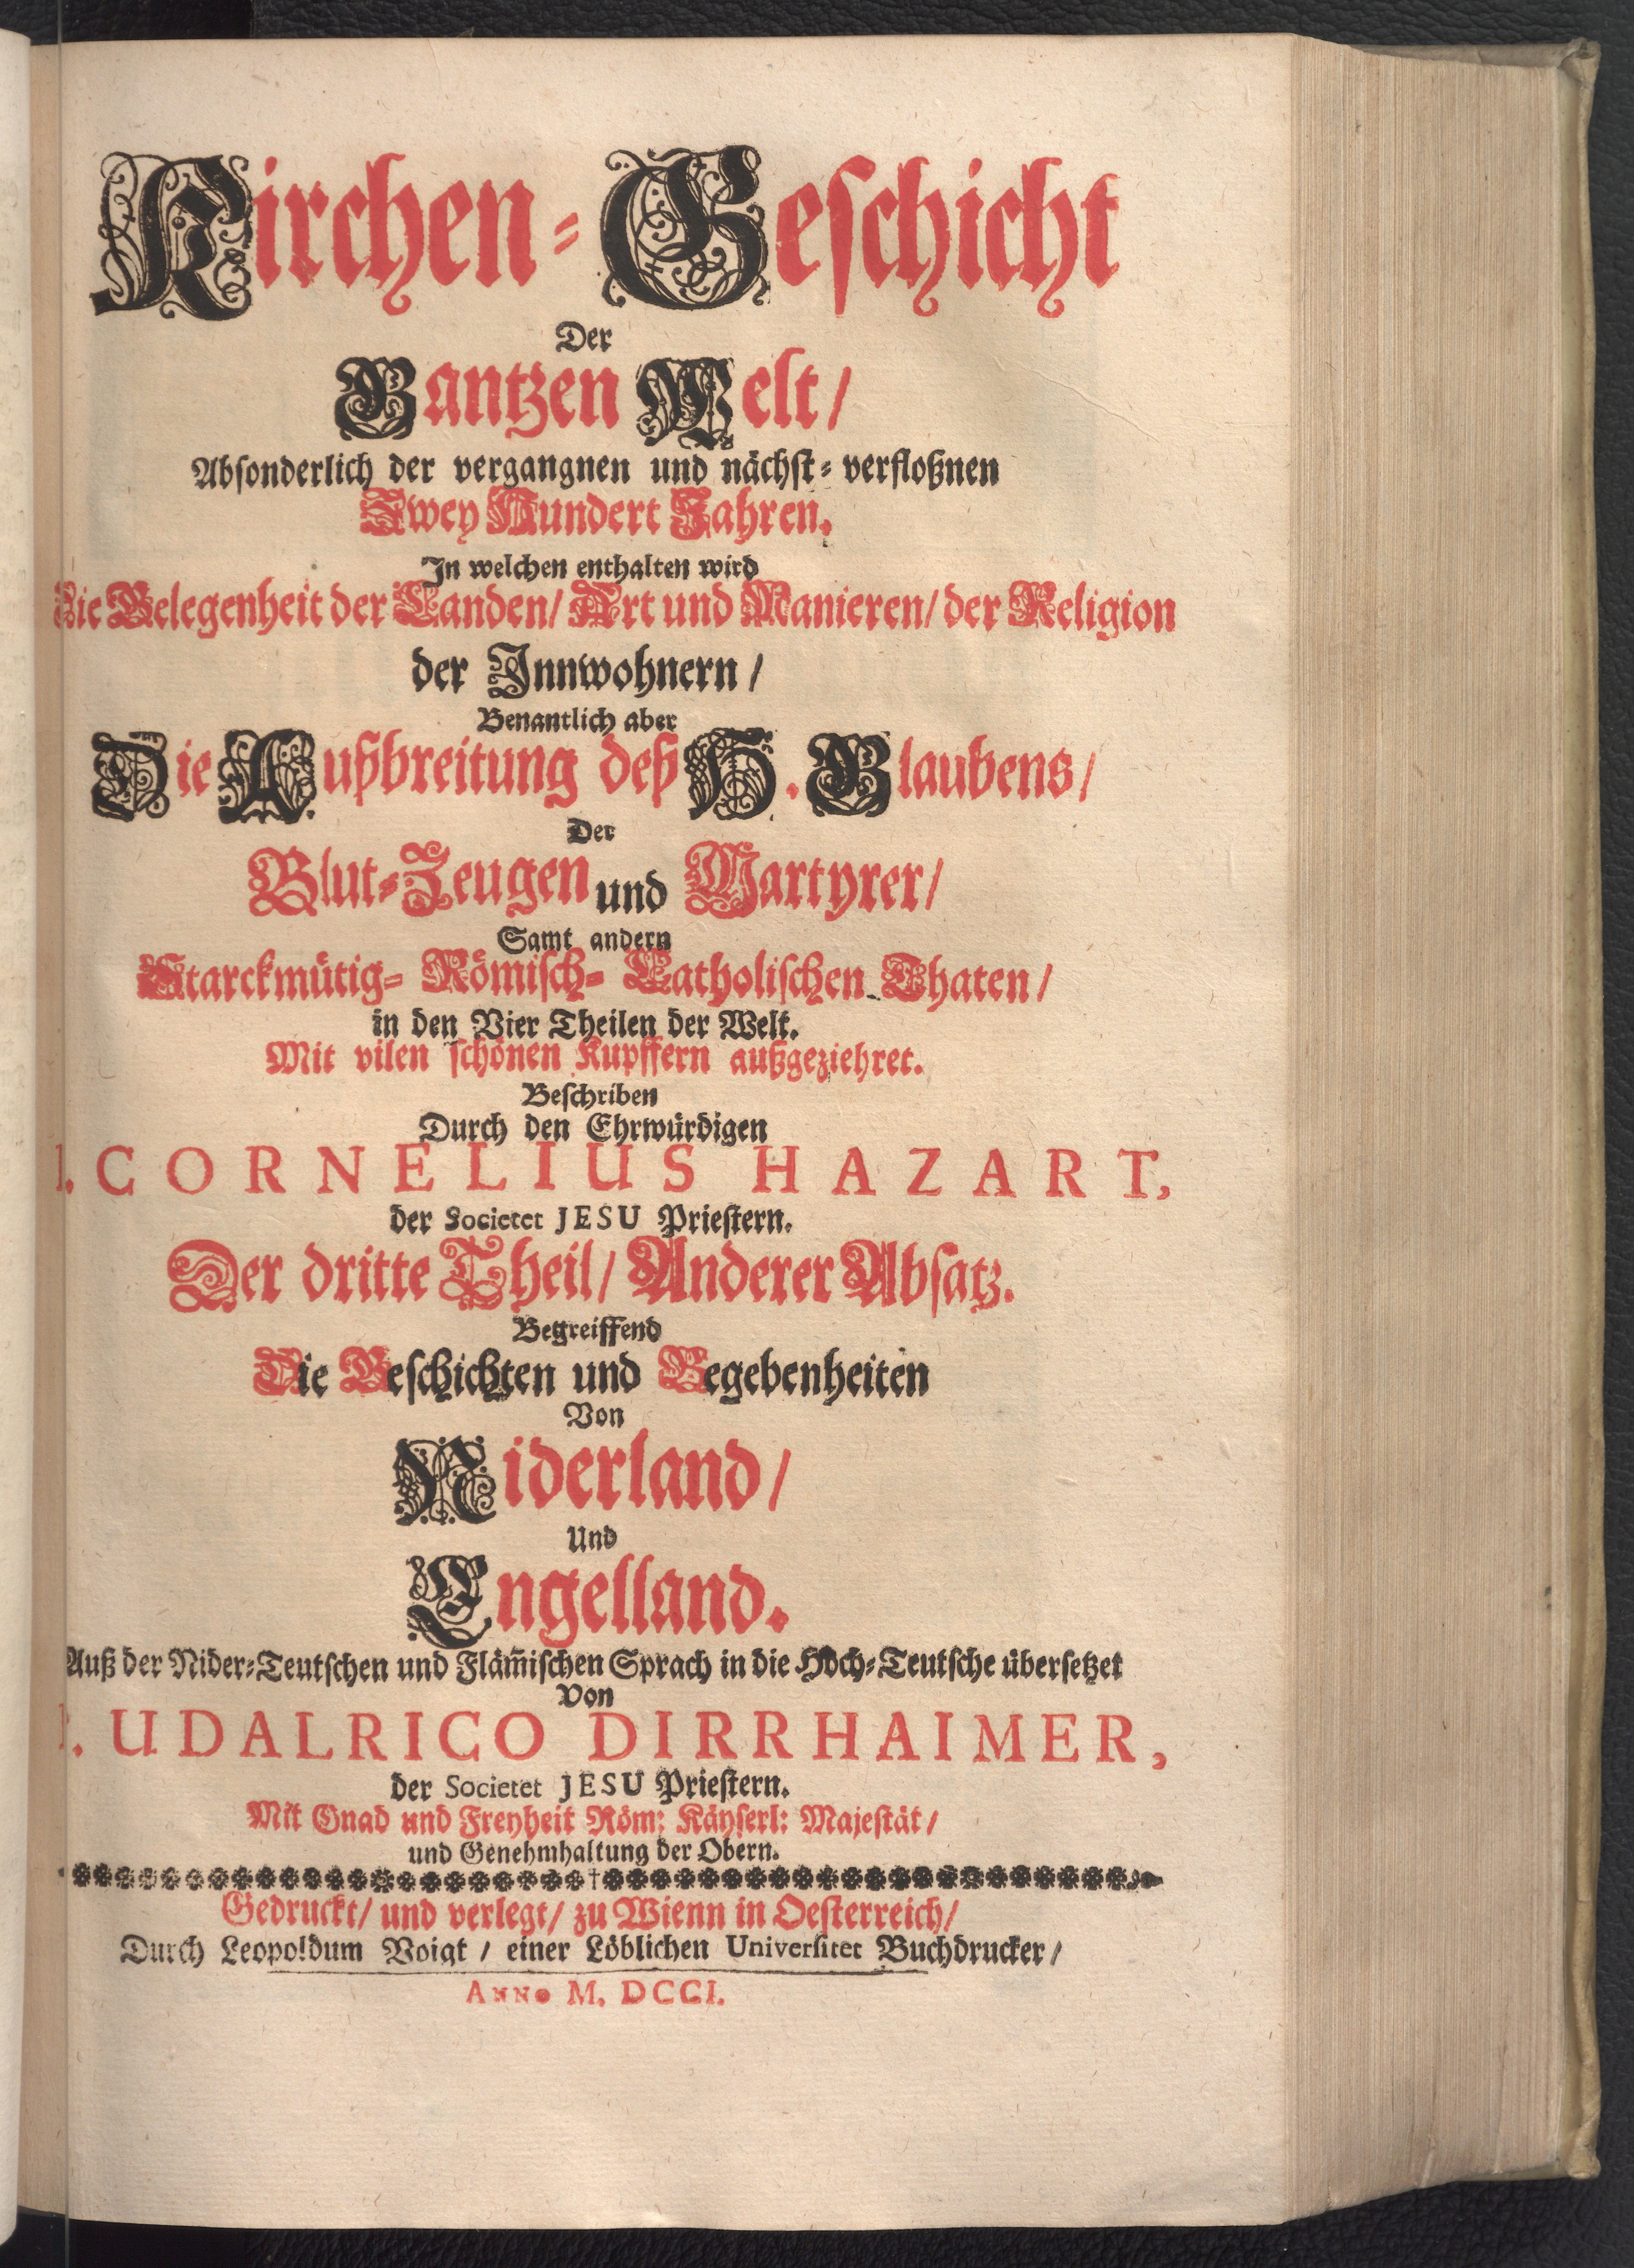 Kirchen-Geschicht
Der
Gantzen Welt/
Absonderlich der vergangnen und nächst-verfloßnen
Zwey Hundert Jahren.
In welchen enthalten wird
Die Gelegenheit der Landen/ Art und Manieren/ der Religion
der Innwohnern/
Benantlich aber
Die Außbreitung deß H. Glaubens/
Der
Blut-Zeugen und Martyrer/
Samt andern
Starckmütig- Römisch- Catholischen Thaten/
in den Vier Theilen der Welt.
Mit vilen schönen Kupffern außgeziehret.
Beschriben
Durch den Ehrwürdigen
P. CORNELIUS HAZART,
der Societet JESU Priestern.
Der dritte Theil/ Anderer Absatz.
Begreiffend
Die Geschichten und Begebenheiten
Von
Niderland/
Und
Engelland.
Auß der Nider-Teutschen und Fläm̃ischen Sprach in die Hoch-Teutsche übersetzet
Von
P. UDALRICO DIRRHAIMER,
der Societet JESU Priestern.
Mit Gnad und Freyheit Röm: Käyserl: Majestät/
und Genehmhaltung der Obern.
Gedruckt/ und verlegt/ zu Wienn in Oesterreich/
Durch Leopoldum Voigt/ einer Löblichen Universitet Buchdrucker/
Anno M. DCCI.